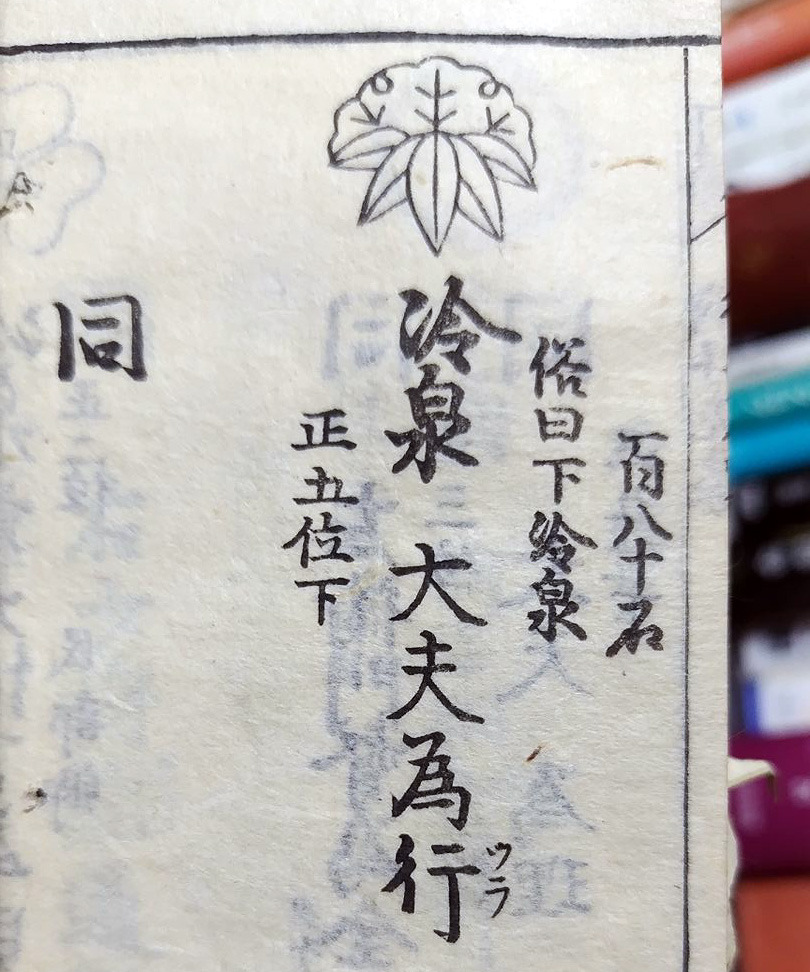 一百八十石
俗曰下冷泉
冷泉 大夫為行
ツラ
正五位下
同